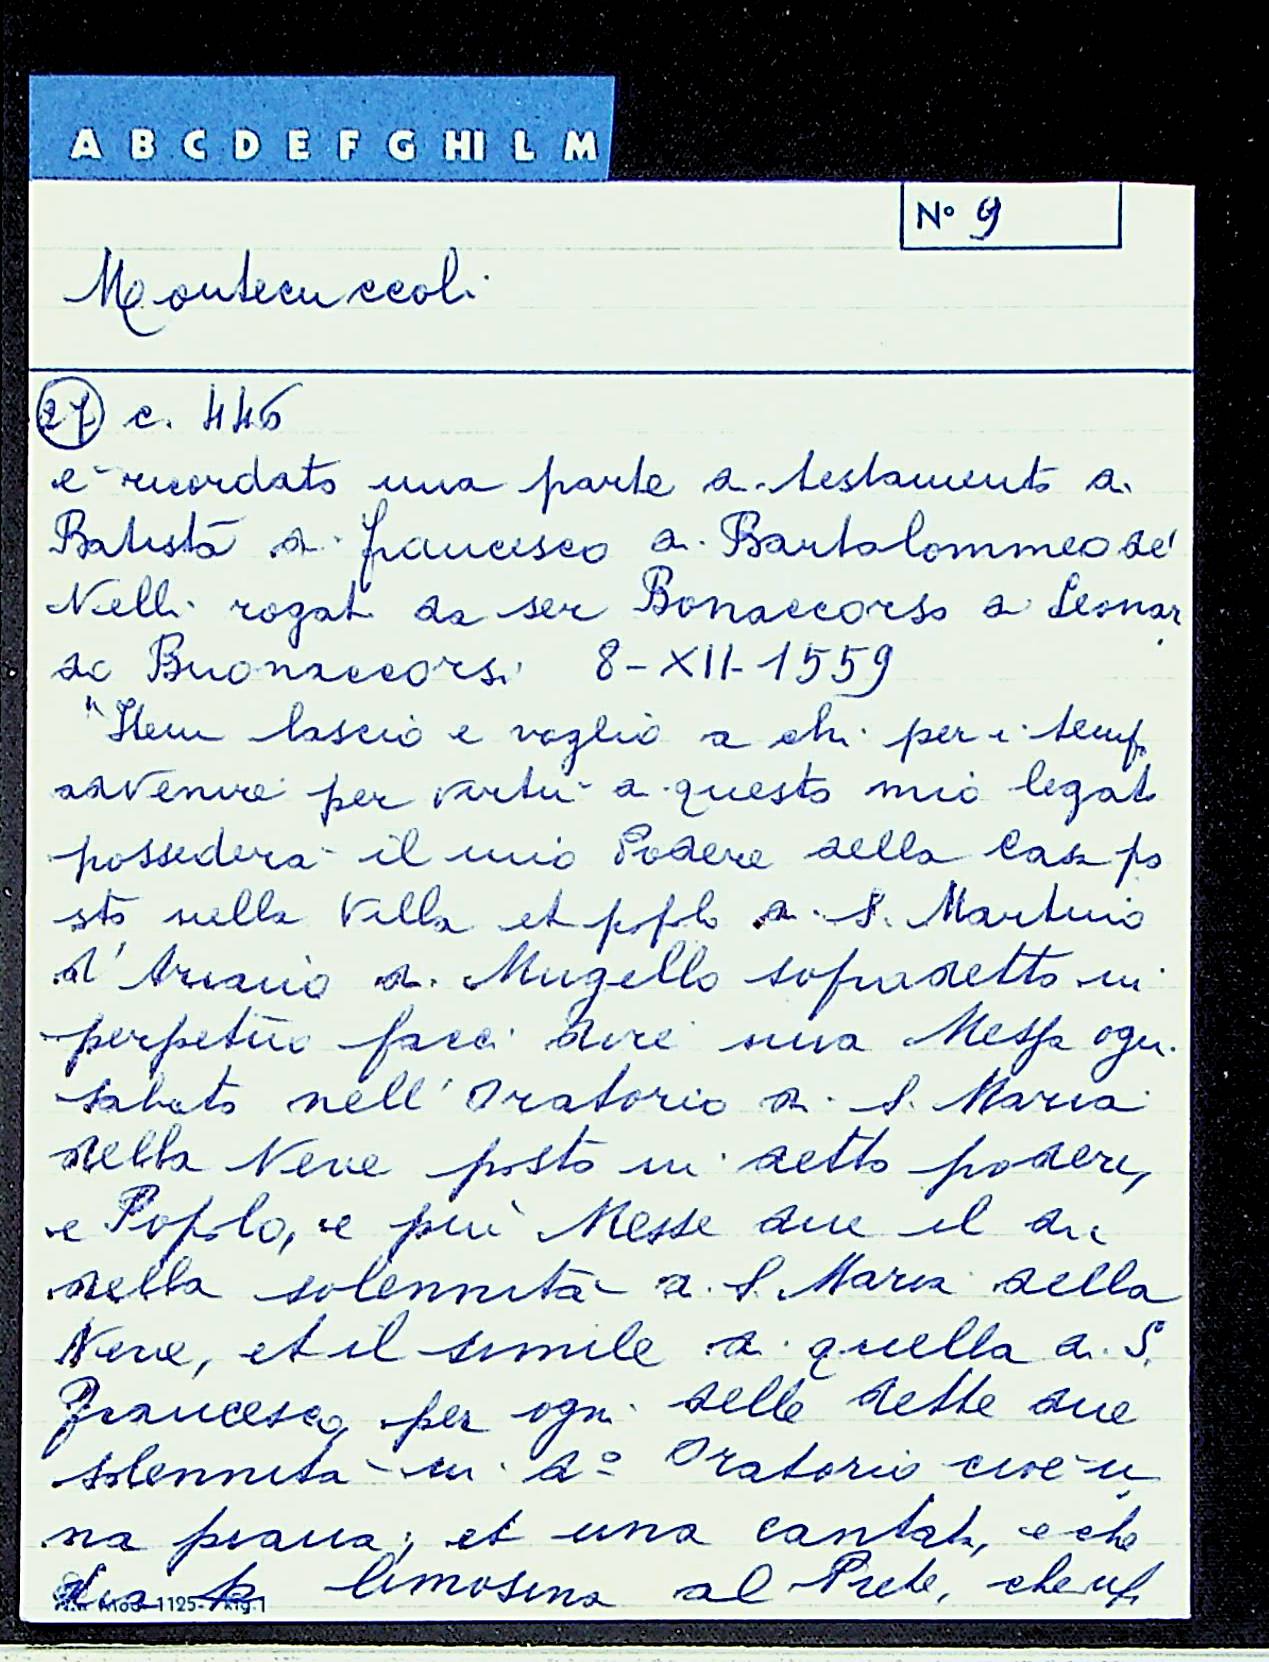 A B C D E F G HI L M
N° 9
Montecuccoli
27 c. 446
è ricordato una parte di testamento di
Batista di Francesco di Bartolommeo de'
Nelli rogato da ser Bonaccorso di Leonar
do Buonaccorsi 8-XII-1559
"Item lascio e voglio a chi per i temp
advenire per vertù di questo mio legato
possederà il mio Podere della Casa po
sto nella Villa et pplo di S. Martino
d'Ariano di Mugello sopradetto in
perpetuo facci dire una Messa ogni
sabato nell'Oratorio di S. Maria
della Neve posto in detto podere,
e Popolo, e più Messe due il dì
della solennità di S. Maria della
Neve, et il simile di quella di S.
Francesco, per ogni delle dette due
solennità in d° Oratorio cioè u
na piana, et una cantata, e che
dia limosina al Prete, che uf
Mod. 1125- Rig.1